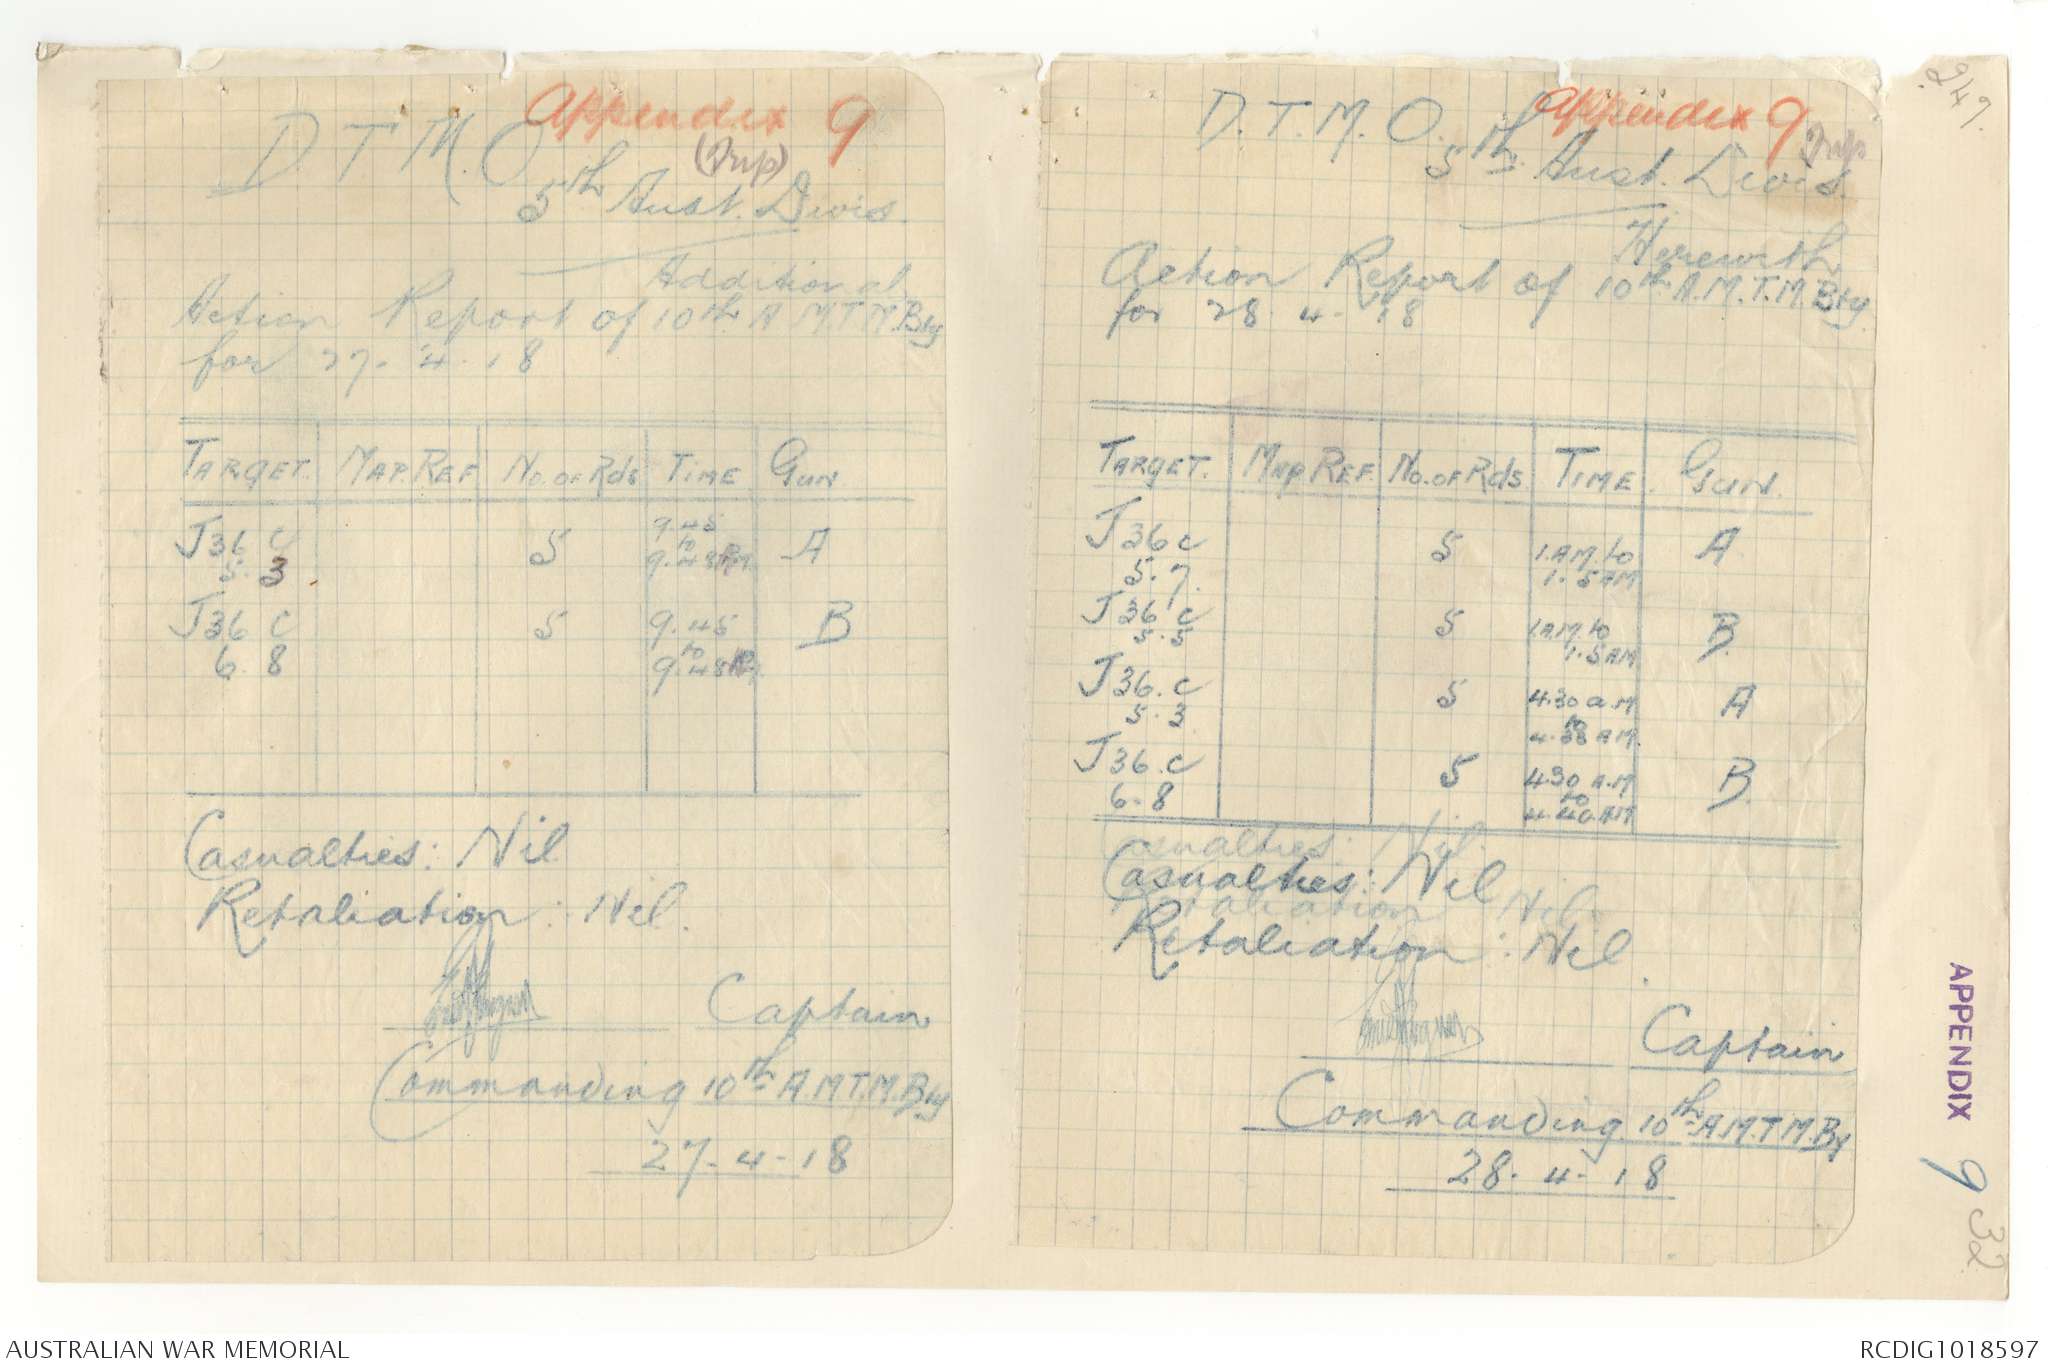 Appendix 9
D.T.M.O.
(Dup)
5th Aust. Divis.
Additional
Action Report of 10th A M.T.M. Bty
for 27. 4. 18
TARGET. MAP. REF No. OF Rds TIME GUN
J36 c 5 9.45 A
5. 3 to
9.48 PM
J36 c 5 9.45 B
6. 8 to
9.48 PM
Casualties: Nil
Retaliation: Nil.
Captain
Commanding 10th A.M.T.M. Bty
27. 4. 18
247.
Appendix 9 Dup
D. T. M. O.
5th Aust. Divis.
Herewith
Action Report of 10th A.M.T.M. Bty
for 28. 4. 18
TARGET. MAP. REF No. OF Rds TIME. GUN.
J36 c 5 1. AM. to A
5. 7. 1. 5 AM
J36 c 5 1. A.M. to B
5. 5 1. 5 AM
J36. c 5 4.30 a.m A
5. 3 to
4.38 AM.
J36. c 5 4.30 A.M B
6. 8 to
4.40. AM
Casualties: Nil.
Casualties: Nil
Retaliation Nil
Retaliation: Nil.
Captain
Commanding 10th A.M.T.M. By
28. 4. 18
APPENDIX 9
32
AUSTRALIAN WAR MEMORIAL
RCDIG1018597